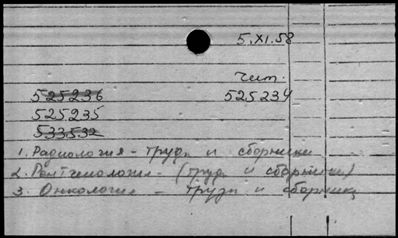 5.XI.58
чит.
525236 525234
525235
533532
1. Радиология - труды и сборники
2. Рентгенология - (труды и сборники)
3. Онкология - труды и сборники